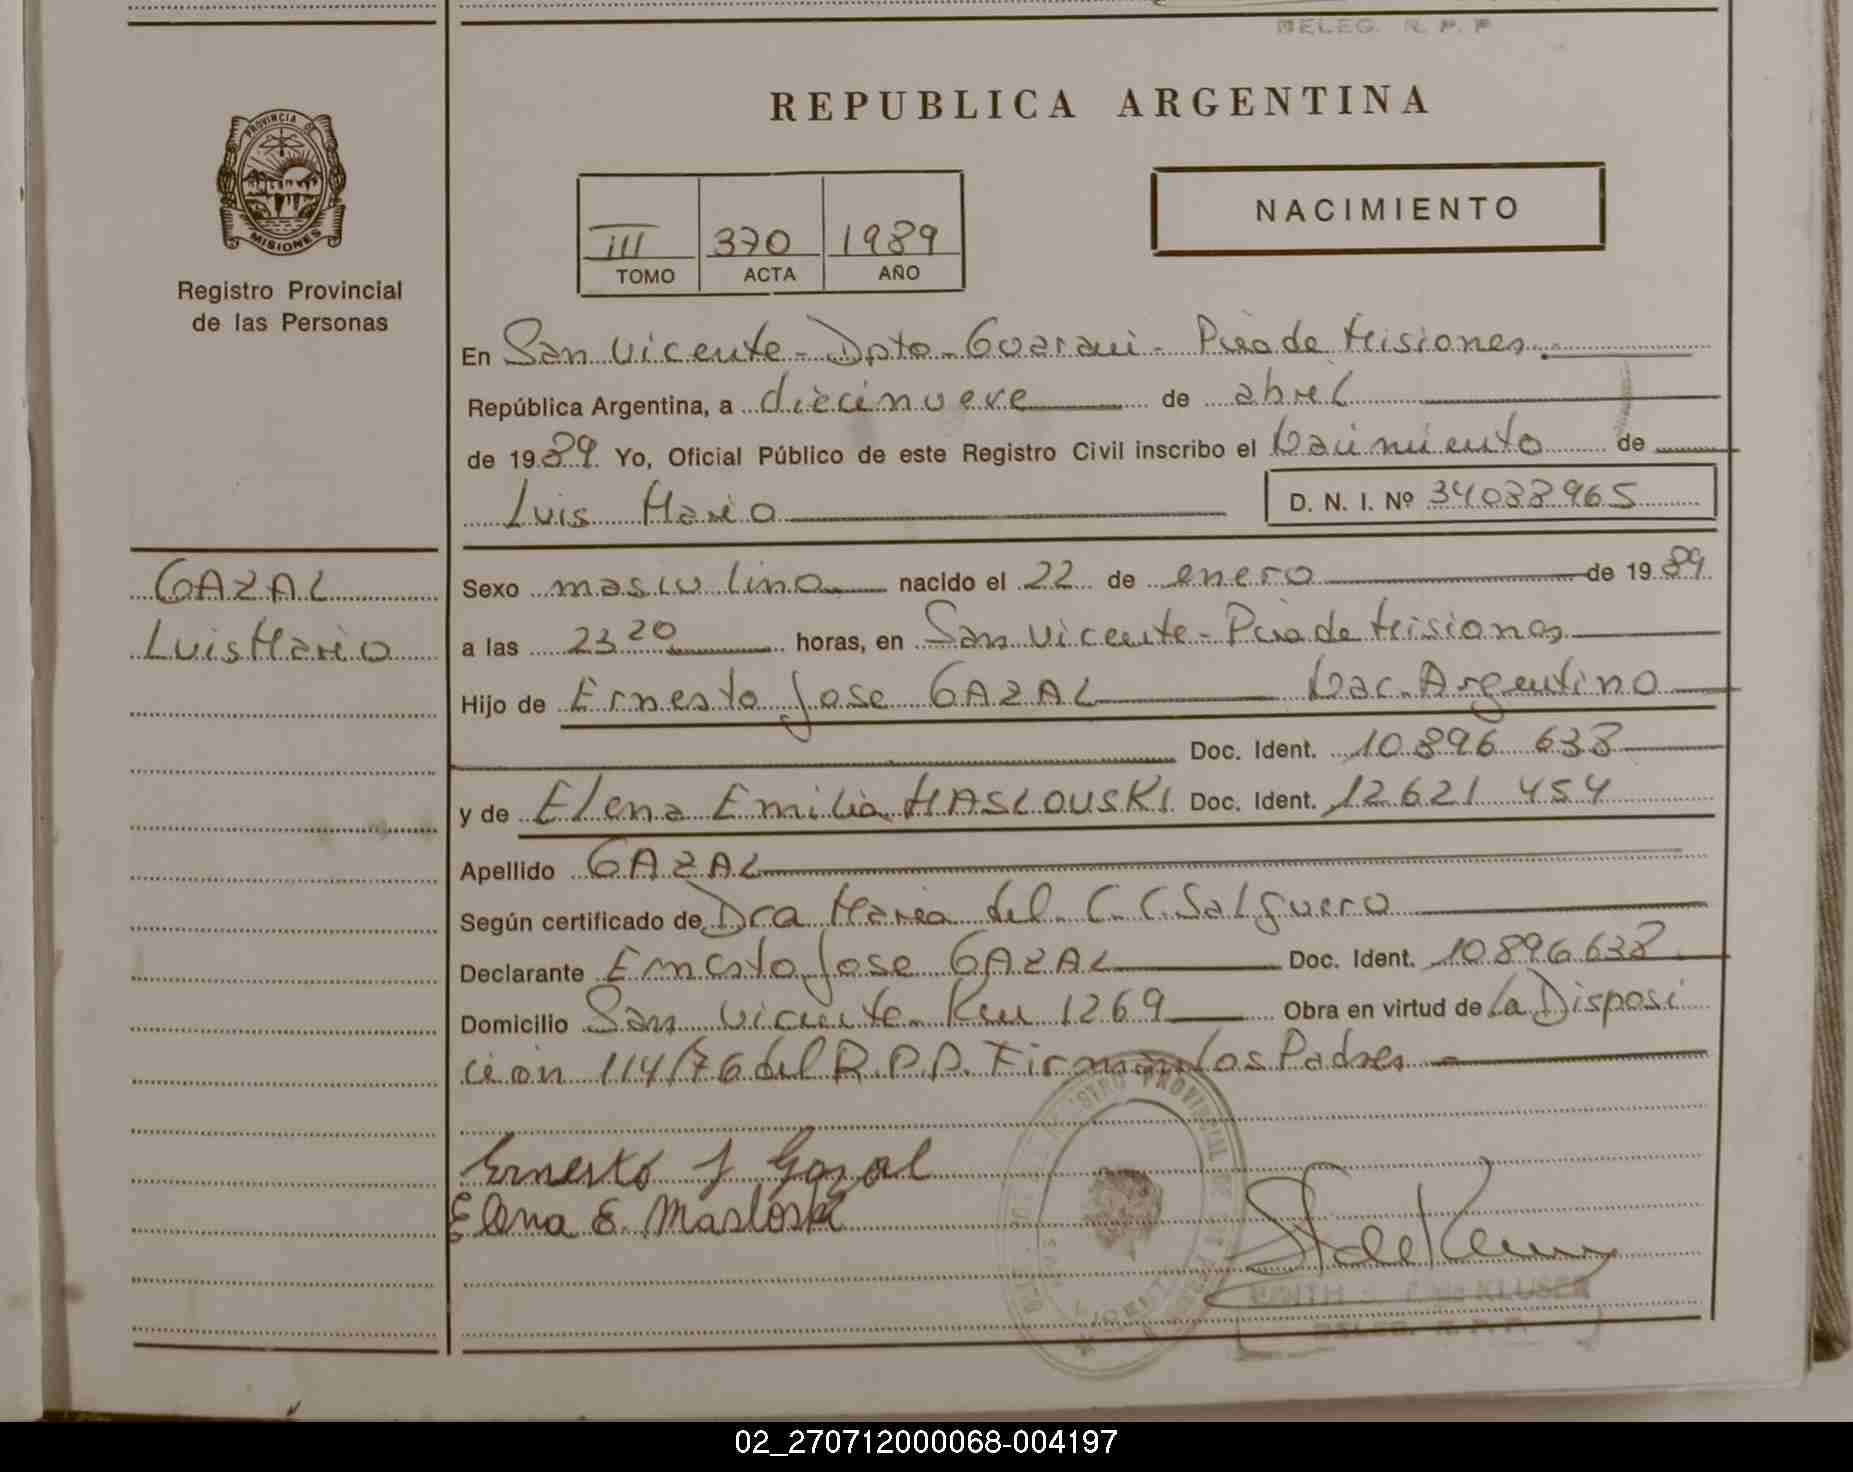 DELEG. R. P. P
REPUBLICA ARGENTINA
PROVINCIA DE
MISIONES
Registro Provincial
de las Personas
III 370 1989
TOMO ACTA AÑO
NACIMIENTO
En San Vicente - Dpto - Guarani - Pcia de Misiones
República Argentina, a diecinueve de abril
de 1989. Yo, Oficial Público de este Registro Civil inscribo el Nacimiento de
Luis Mario
D. N. I. Nº 34088965
GAZAL
Luis Mario
Sexo masculino nacido el 22 de enero de 1989
a las 23 20 horas, en San Vicente - Pcia de Misiones
Hijo de Ernesto Jose GAZAL Nac. Argentino
Doc. Ident. 10.896 638
y de Elena Emilia MASLOUSKI Doc. Ident. 12.621 454
Apellido GAZAL
Según certificado de Dra Maria del C. C. Salguero
Declarante Ernesto Jose GAZAL Doc. Ident. 10.896.638
Domicilio San Vicente - Km 1269 Obra en virtud de La Disposi
ción 114/76 del R.P.P. Firman los Padres
Ernesto J Gazal
Elena E. Masloski
REGISTRO PROVINCIAL DE
KLUSER
DELEG. R. P. P.
02_270712000068-004197